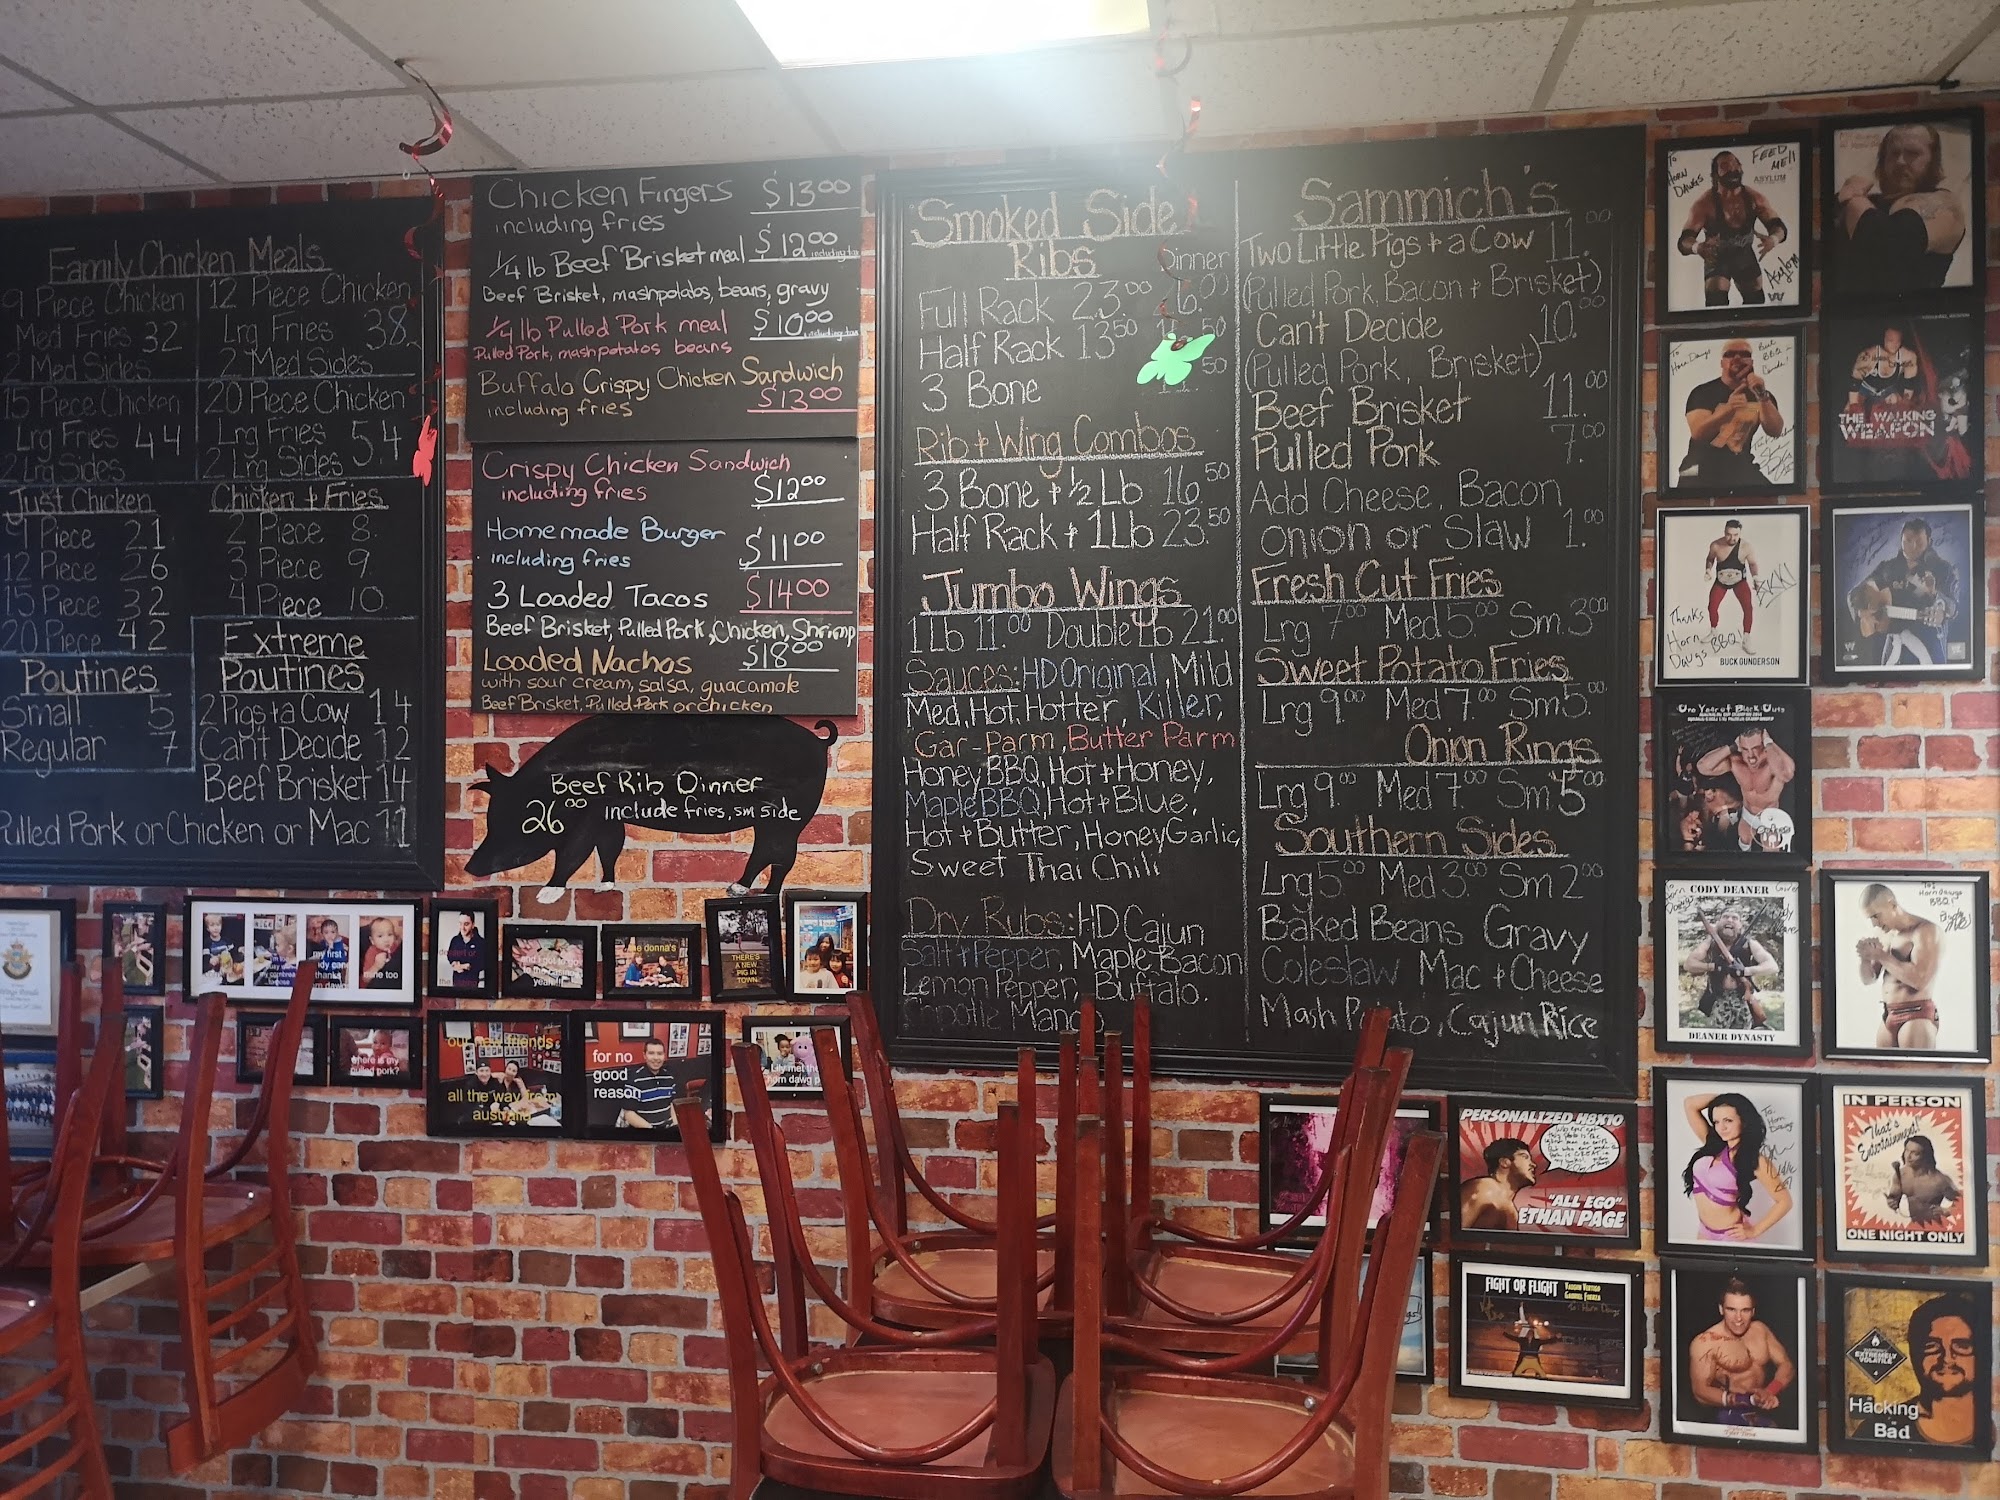 Family Chicken Meals
9 Piece Chicken
Med Fries 32
2 Med Sides
12 Piece Chicken
Lrg Fries 38
2 Med Sides
15 Piece Chicken
Lrg Fries 44
2 Lrg Sides
20 Piece Chicken
Lrg Fries 54
2 Lrg Sides
Just Chicken
9 Piece 21
12 Piece 26
15 Piece 32
20 Piece 42
Chicken + Fries
2 Piece 8
3 Piece 9
4 Piece 10
Poutines
Small 5
Regular 7
Extreme
Poutines
2 Pigs + a Cow 14
Can't Decide 12
Beef Brisket 14
Pulled Pork or Chicken or Mac 11
Chicken Fingers $13.00
including fries
1/4 lb Beef Brisket meal $12.00 including tax
Beef Brisket, mashpotatos, beans, gravy
1/4 lb Pulled Pork meal $10.00 including tax
Pulled Pork, mashpotatos beans
Buffalo Crispy Chicken Sandwich
including fries $13.00
Crispy Chicken Sandwich
including fries $12.00
Homemade Burger
including fries $11.00
3 Loaded Tacos $14.00
Beef Brisket, Pulled Pork, Chicken, Shrimp
Loaded Nachos $18.00
with sour cream, salsa, guacamole
Beef Brisket, Pulled Pork or chicken
Beef Rib Dinner
26.00 include fries, sm side
Smoked Side
Ribs Dinner
Full Rack 23.00
Half Rack 13.50
3 Bone
Rib + Wing Combos
3 Bone + 1/2 Lb 16.50
Half Rack + 1Lb 23.50
Jumbo Wings
1 Lb 11.00 Double Lb 21.00
Sauces: HD Original, Mild
Med, Hot, Hotter, Killer,
Gar-Parm, Butter Parm
Honey BBQ, Hot + Honey,
Maple BBQ, Hot + Blue,
Hot + Butter, Honey Garlic
Sweet Thai Chili
Dry Rubs: HD Cajun
Salt + Pepper, Maple Bacon
Lemon Pepper, Buffalo.
Chipotle Mango
Sammich's
Two Little Pigs + a Cow 11.00
(Pulled Pork, Bacon + Brisket)
Can't Decide 10.00
(Pulled Pork, Brisket)
Beef Brisket 11.00
Pulled Pork 7.00
Add Cheese, Bacon
onion or Slaw 1.00
Fresh Cut Fries
Lrg 7.00 Med 5.00 Sm. 3.00
Sweet Potato Fries
Lrg 9.00 Med 7.00 Sm 5.00
Onion Rings
Lrg 9.00 Med 7.00 Sm 5.00
Southern Sides
Lrg 5.00 Med 3.00 Sm 2.00
Baked Beans Gravy
Coleslaw Mac + Cheese
Mash Potato, Cajun Rice
To Horn Dawgs
FEED ME!!
ASYLUM
THE WALKING
WEAPON
Thanks
Horn
Dawgs BBQ!
BUCK GUNDERSON
One Year of Black Outs
CODY DEANER
DEANER DYNASTY
PERSONALIZED 8X10
"ALL EGO"
ETHAN PAGE
IN PERSON
That's Entertainment!
ONE NIGHT ONLY
FIGHT OR FLIGHT
EXTREMELY
VOLATILE
Hacking
Bad
my first
mine too
and i got to go
to the casino
yeah!!!
the donna's
THERE'S
A NEW
PIG IN
TOWN
where is my
pulled pork?
our new friends
all the way from
australia
for no
good
reason
Lily met the